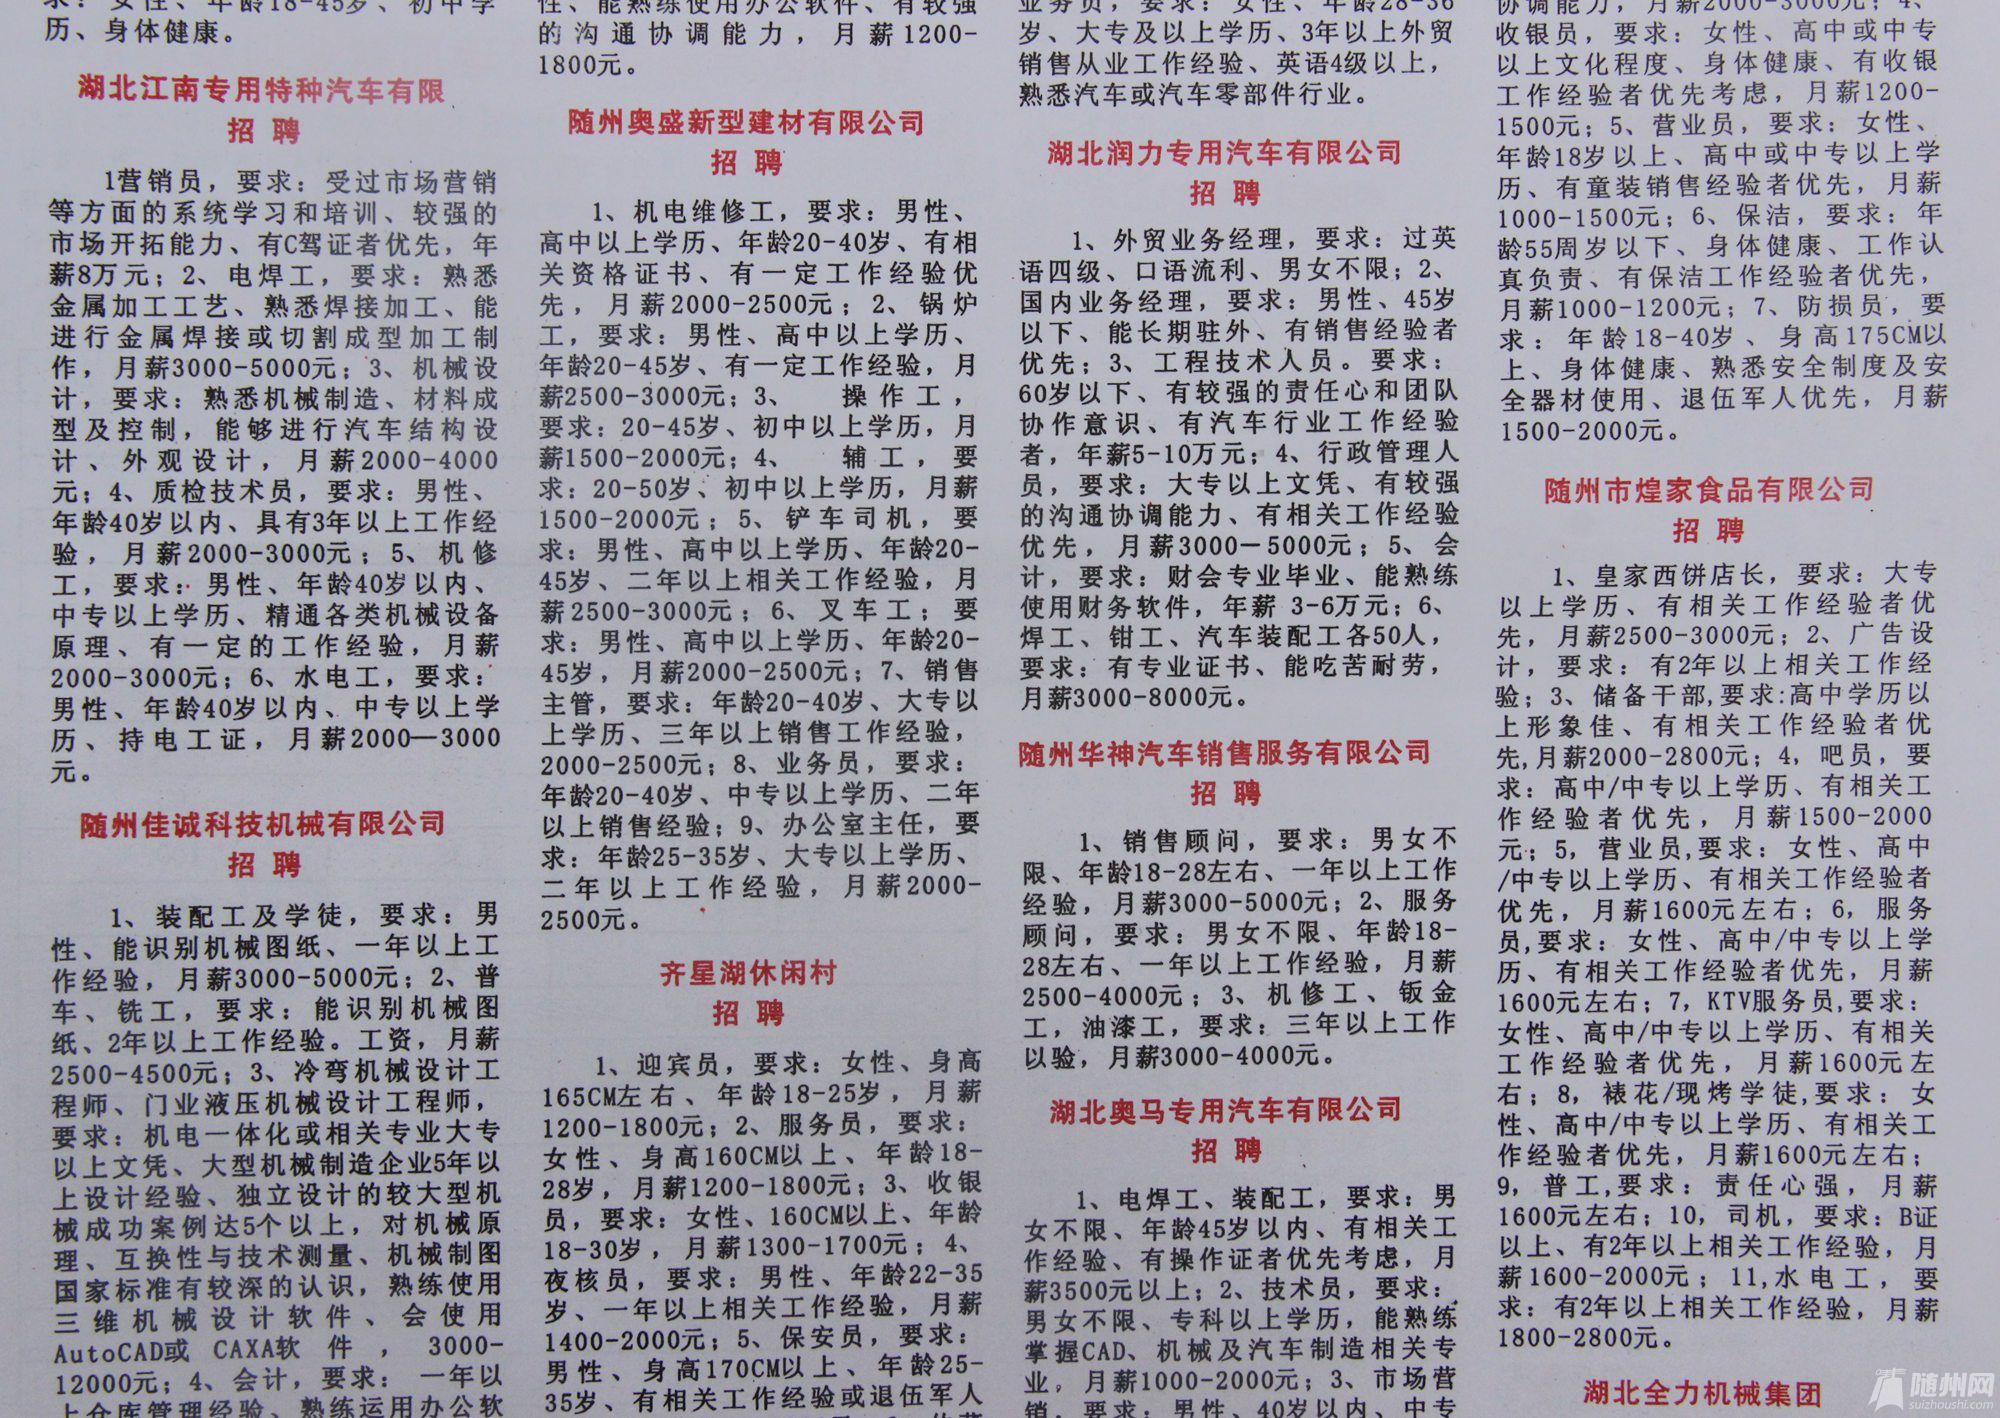 求：女性、年龄18-45岁、初中学
历、身体健康。
湖北江南专用特种汽车有限
招 聘
1营销员，要求：受过市场营销
等方面的系统学习和培训、较强的
市场开拓能力、有C驾证者优先，年
薪8万元；2、电焊工，要求：熟悉
金属加工工艺、熟悉焊接加工、能
进行金属焊接或切割成型加工制
作，月薪3000-5000元；3、机械设
计，要求：熟悉机械制造、材料成
型及控制，能够进行汽车结构设
计、外观设计，月薪2000-4000
元；4、质检技术员，要求：男性、
年龄40岁以内、具有3年以上工作经
验，月薪2000-3000元；5、机修
工，要求：男性、年龄40岁以内、
中专以上学历、精通各类机械设备
原理、有一定的工作经验，月薪
2000-3000元；6、水电工，要求：
男性、年龄40岁以内、中专以上学
历、持电工证，月薪2000—3000
元。
随州佳诚科技机械有限公司
招 聘
1、装配工及学徒，要求：男
性、能识别机械图纸、一年以上工
作经验，月薪3000-5000元；2、普
车、铣工，要求：能识别机械图
纸、2年以上工作经验。工资，月薪
2500-4500元；3、冷弯机械设计工
程师、门业液压机械设计工程师，
要求：机电一体化或相关专业大专
以上文凭、大型机械制造企业5年以
上设计经验、独立设计的较大型机
械成功案例达5个以上，对机械原
理、互换性与技术测量、机械制图
国家标准有较深的认识，熟练使用
三维机械设计软件、会使用
AutoCAD或 CAXA软件，3000-
12000元；4、会计，要求：一年以
上仓库管理经验、熟练运用办公软
性、能熟练使用办公软件、有较强
的沟通协调能力，月薪1200-
1800元。
随州奥盛新型建材有限公司
招 聘
1、机电维修工，要求：男性、
高中以上学历、年龄20-40岁、有相
关资格证书、有一定工作经验优
先，月薪2000-2500元；2、锅炉
工，要求：男性、高中以上学历、
年龄20-45岁、有一定工作经验，月
薪2500-3000元；3、 操作工，
要求：20-45岁、初中以上学历，月
薪1500-2000元；4、 辅工，要
求：20-50岁、初中以上学历，月薪
1500-2000元；5、铲车司机，要
求：男性、高中以上学历、年龄20-
45岁、二年以上相关工作经验，月
薪2500-3000元；6、叉车工；要
求：男性、高中以上学历、年龄20-
45岁，月薪2000-2500元；7、销售
主管，要求：年龄20-40岁、大专以
上学历、三年以上销售工作经验，
2000-2500元；8、业务员，要求：
年龄20-40岁、中专以上学历、二年
以上销售经验；9、办公室主任，要
求：年龄25-35岁、大专以上学历、
二年以上工作经验，月薪2000-
2500元。
齐星湖休闲村
招 聘
1、迎宾员，要求：女性、身高
165CM左右、年龄18-25岁，月薪
1200-1800元；2、服务员，要求：
女性、身高160CM以上、年龄18-
28岁，月薪1200-1800元；3、收银
员，要求：女性、160CM以上、年龄
18-30岁，月薪1300-1700元；4、
夜核员，要求：男性、年龄22-35
岁、一年以上相关工作经验，月薪
1400-2000元；5、保安员，要求：
男性、身高170CM以上、年龄25-
35岁、有相关工作经验或退伍军人
业务员，要求：女性、年龄28-36
岁、大专及以上学历、3年以上外贸
销售从业工作经验、英语4级以上，
熟悉汽车或汽车零部件行业。
湖北润力专用汽车有限公司
招 聘
1、外贸业务经理，要求：过英
语四级、口语流利、男女不限；2、
国内业务经理，要求：男性、45岁
以下、能长期驻外、有销售经验者
优先；3、工程技术人员。要求：
60岁以下、有较强的责任心和团队
协作意识、有汽车行业工作经验
者，年薪5-10万元；4、行政管理人
员，要求：大专以上文凭、有较强
的沟通协调能力、有相关工作经验
优先，月薪3000—5000元；5、会
计，要求：财会专业毕业、能熟练
使用财务软件，年薪 3-6万元；6、
焊工、钳工、汽车装配工各50人，
要求：有专业证书、能吃苦耐劳，
月薪3000-8000元。
随州华神汽车销售服务有限公司
招 聘
1、销售顾问，要求：男女不
限、年龄18-28左右、一年以上工作
经验，月薪3000-5000元；2、服务
顾问，要求：男女不限、年龄18-
28左右、一年以上工作经验，月薪
2500-4000元；3、机修工、钣金
工，油漆工，要求：三年以上工作
以验，月薪3000-4000元。
湖北奥马专用汽车有限公司
招 聘
1、电焊工、装配工，要求：男
女不限、年龄45岁以内、有相关工
作经验、有操作证者优先考虑，月
薪3500元以上；2、技术员，要求：
男女不限、专科以上学历，能熟练
掌握CAD、机械及汽车制造相关专
业，月薪1000-2000元；3、市场营
销，要求：男性、40岁以内、中专
协调能力，月薪2000-3000元；4、
收银员，要求：女性、高中或中专
以上文化程度、身体健康、有收银
工作经验者优先考虑，月薪1200-
1500元；5、营业员，要求：女性、
年龄18岁以上、高中或中专以上学
历、有童装销售经验者优先，月薪
1000-1500元；6、保洁，要求：年
龄55周岁以下、身体健康、工作认
真负责、有保洁工作经验者优先，
月薪1000-1200元；7、防损员，要
求：年龄18-40岁、身高175CM以
上、身体健康、熟悉安全制度及安
全器材使用、退伍军人优先，月薪
1500-2000元。
随州市煌家食品有限公司
招 聘
1、皇家西饼店长，要求：大专
以上学历、有相关工作经验者优
先，月薪2500-3000元；2、广告设
计，要求：有2年以上相关工作经
验；3、储备干部,要求:高中学历以
上形象佳、有相关工作经验者优
先,月薪2000-2800元；4，吧员，要
求：高中/中专以上学历、有相关工
作经验者优先，月薪1500-2000
元；5，营业员,要求：女性、高中
/中专以上学历、有相关工作经验者
优先，月薪1600元左右；6，服务
员,要求：女性、高中/中专以上学
历、有相关工作经验者优先，月薪
1600元左右；7，KTV服务员,要求：
女性、高中/中专以上学历、有相关
工作经验者优先，月薪1600元左
右；8，裱花/现烤学徒,要求：女
性、高中/中专以上学历、有相关工
作经验者优先，月薪1600元左右；
9，普工,要求：责任心强，月薪
1600元左右；10，司机，要求：B证
以上、有2年以上相关工作经验，月
薪1600-2000元；11,水电工，要
求：有2年以上相关工作经验，月薪
1800-2800元。
湖北全力机械集团
随州网
suizhoushi.com